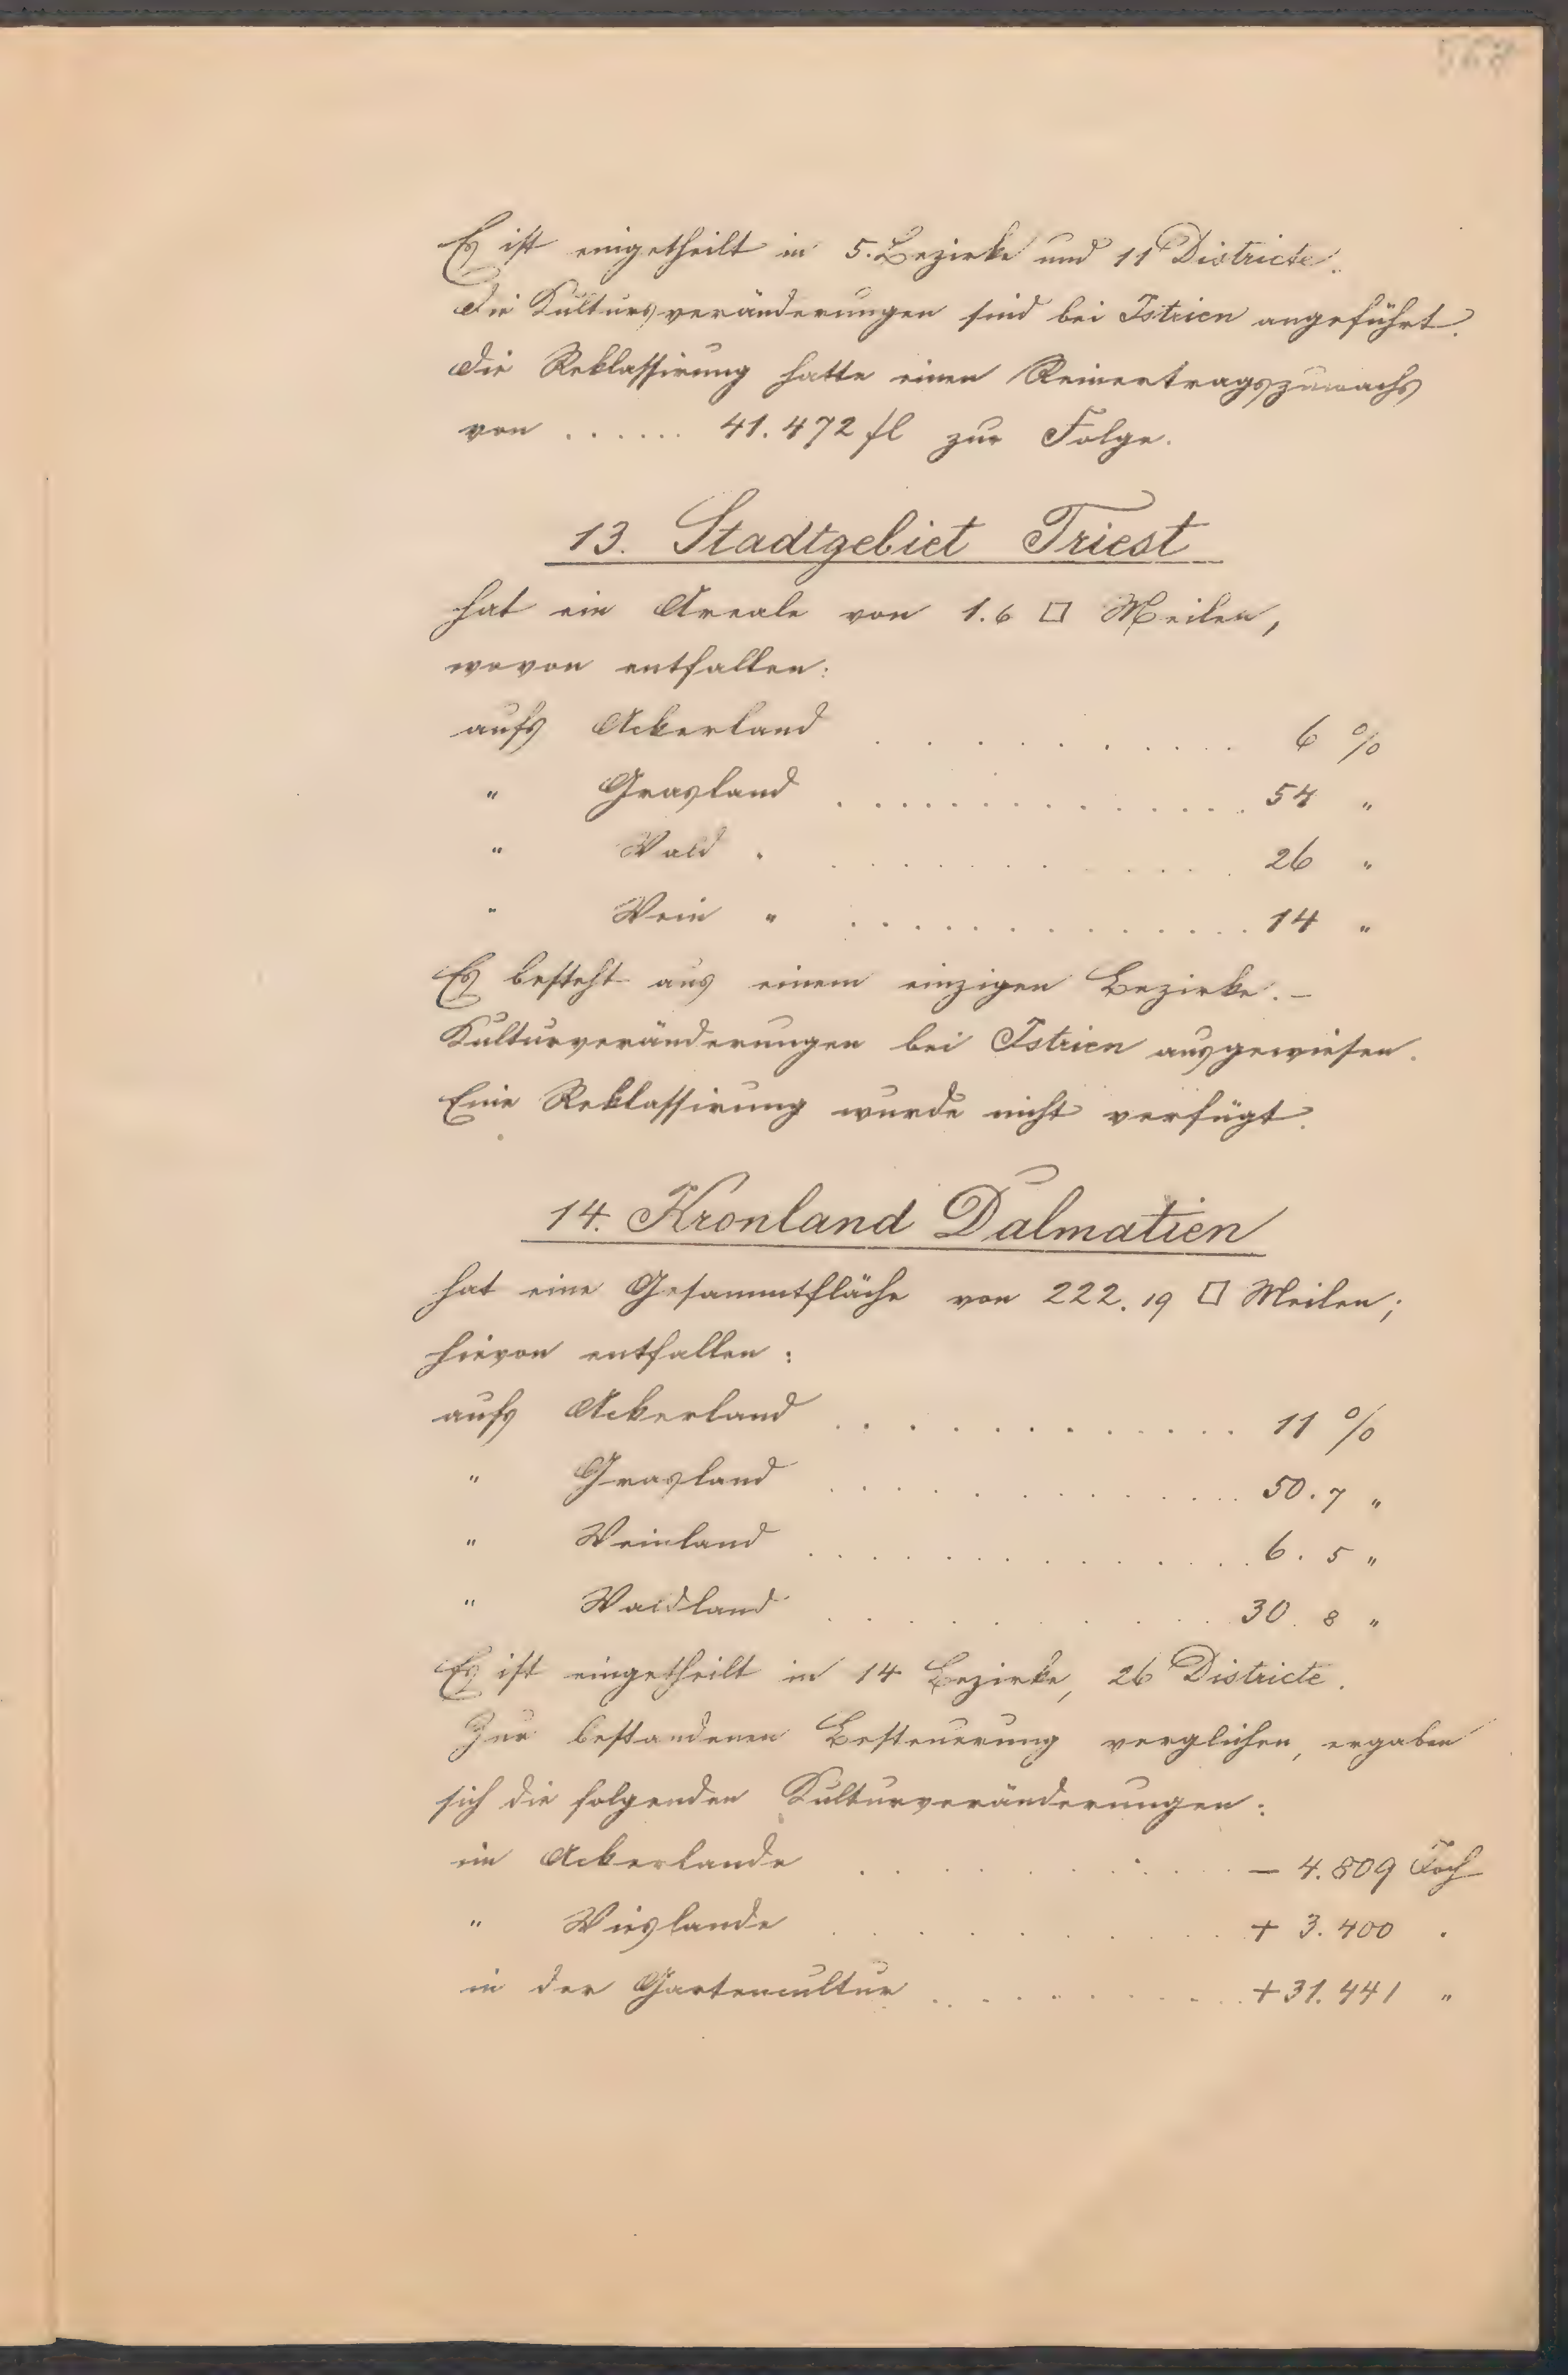 Es ist eingetheilt in 5. Bezirke und 11 Districte.
Die Kultursveränderungen sind bei Istrien angeführt.
Die Reklassirung hatte einen Reinertragszuwachs
von ...... 41.472 fl zur Folge.
13. Stadtgebiet Triest
hat ein Areale von 1.6 □ Meilen,
wovon entfallen:
aufs Ackerland . . . . . . . . . 6 %
" Grasland . . . . . . . . . . . 54 "
" Wald " . . . . . . . . . 26 "
" Wein " . . . . . . . . . . . 14 "
Es besteht aus einem einzigen Bezirke. –
Kulturveränderungen bei Istrien ausgewiesen.
Eine Reklassirung wurde nicht verfügt.
14. Kronland Dalmatien
hat eine Gesammtfläche von 222.19 □ Meilen;
hievon entfallen:
aufs Ackerland . . . . . . . . . . . 11 %
" Grasland . . . . . . . . . . . 50.7 "
" Weinland . . . . . . . . . . . 6.5 "
" Waldland . . . . . . . . . 30.8 "
Es ist eingetheilt in 14 Bezirke, 26 Districte.
Zur bestandenen Besteuerung verglichen, ergaben
sich die folgenden Kulturveränderungen:
im Ackerlande . . . . . . . . . – 4.809 Joch
" Wieslande . . . . . . . . . + 3.400 "
in der Gartencultur . . . . . . . . . + 31.441 "